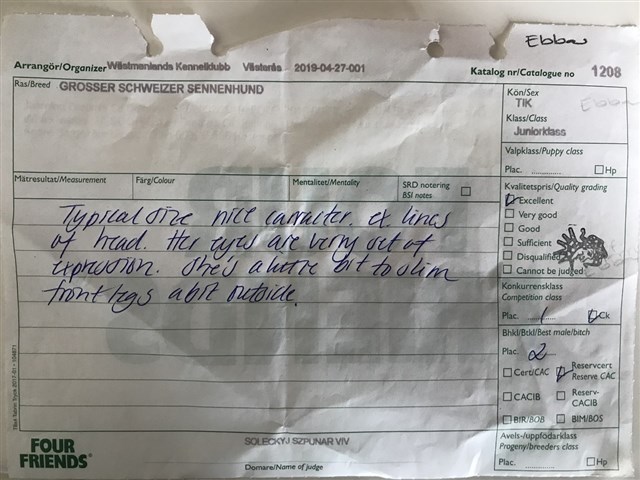 Ebba
Arrangör/Organizer Wästmanlands Kennelklubb Västerås 2019-04-27-001
Katalog nr/Catalogue no 1208
Ras/Breed GROSSER SCHWEIZER SENNENHUND
Kön/Sex
TIK
Ebba
Klass/Class
Juniorklass
Valpklass/Puppy class
Plac. Hp
Mätresultat/Measurement Färg/Colour Mentalitet/Mentality SRD notering
BSI notes
Kvalitetspris/Quality grading
Excellent
Very good
Good
Sufficient
Disqualified
Cannot be judged
Typical size nice carracter. ex. lines
of head. Her eyes are very out of
expression. She's a little bit to slim
front legs a bit outside.
Konkurrensklass
Competition class
Plac. 1 Ck
Bhkl/Btkl/Best male/bitch
Plac. 2
Cert/CAC Reservcert
Reserve CAC
CACIB Reserv-
CACIB
BIR/BOB BIM/BOS
Avels-/uppfödarklass
Progeny/breeders class
Plac. Hp
FOUR
FRIENDS
SOLECKYJ SZPUNAR VIV
Domare/Name of judge